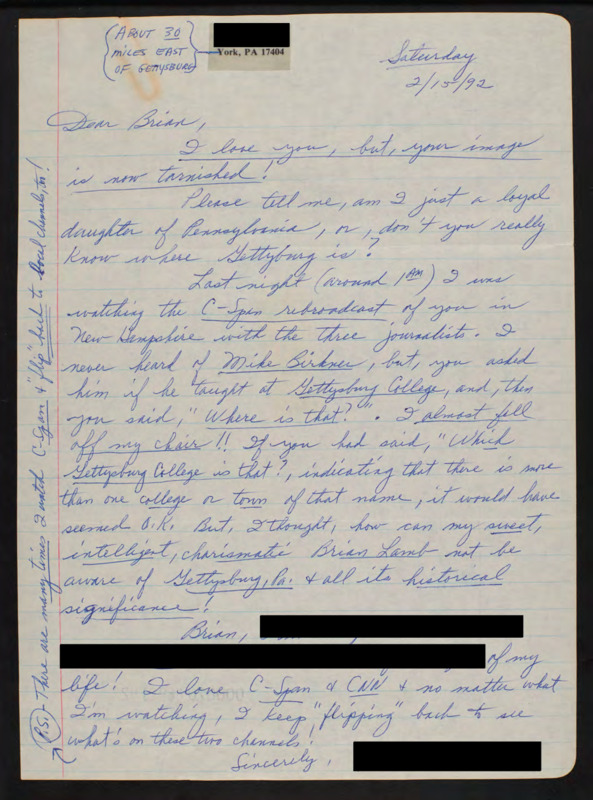 (About 30
miles east
of Gettysburg)
York, PA 17404
Saturday
2/15/92
Dear Brian,
I love you, but, your image
is now tarnished!
Please tell me, am I just a loyal
daughter of Pennsylvania, or, don't you really
know where Gettyburg is?
Last night (around 1 AM) I was
watching the C-Span rebroadcast of you in
New Hampshire with the three journalists. I
never heard of Mike Birkner, but, you asked
him if he taught at Gettysburg College, and, then
you said, "Where is that?". I almost fell
off my chair!! If you had said, "Which
Gettysburg College is that?, indicating that there is more
than one college or town of that name, it would have
seemed O.K. But, I thought, how can my sweet,
intelligent, charismatic Brian Lamb not be
aware of Gettysburg, Pa. & all its historical
significance!
Brian,
of my
life! I love C-Span & CNN & no matter what
I'm watching, I keep "flipping" back to see
what's on these two channels!
Sincerely,
(P.S.) - There are many times I watch C-Span & "flip" back to local channels, too!